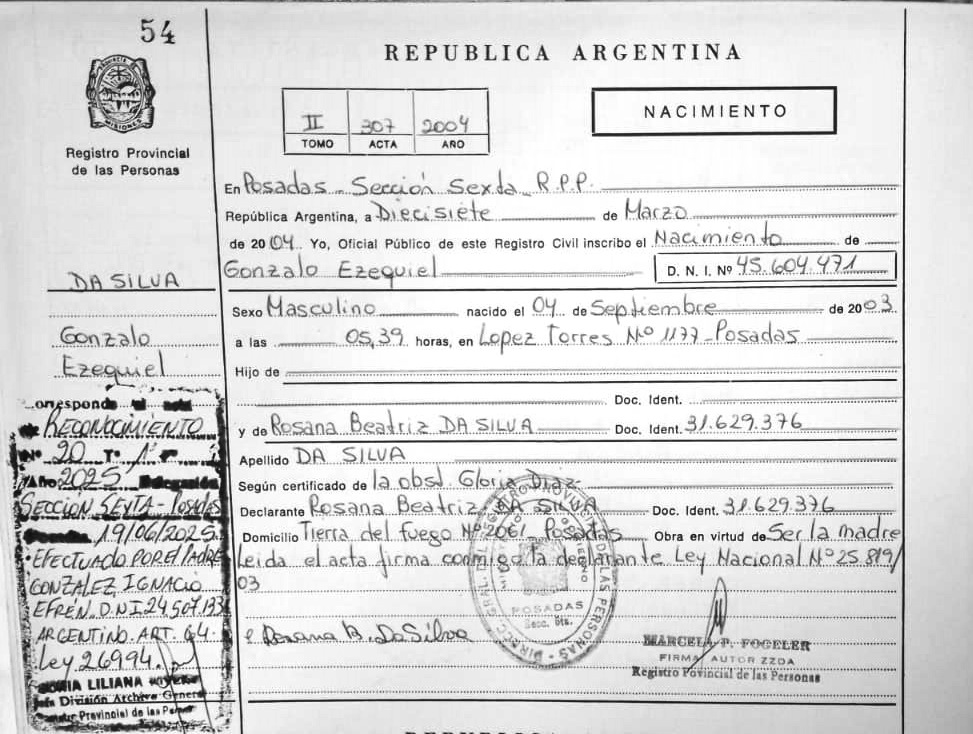 54
REPUBLICA ARGENTINA
PROVINCIA DE MISIONES
Registro Provincial
de las Personas
II 307 2004
TOMO ACTA AÑO
NACIMIENTO
En Posadas Sección Sexta R.P.P.
República Argentina, a Diecisiete de Marzo
de 2004 Yo, Oficial Público de este Registro Civil inscribo el Nacimiento de
Gonzalo Ezequiel D. N. I. Nº 45.604.471
Sexo Masculino nacido el 04 de Septiembre de 2003
a las 05,39 horas, en Lopez Torres Nº 1177 - Posadas
Hijo de
Doc. Ident.
y de Rosana Beatriz DA SILVA Doc. Ident. 31.629.376
Apellido DA SILVA
Según certificado de la obst. Gloria Diaz
Declarante Rosana Beatriz DA SILVA Doc. Ident. 31.629.376
Domicilio Tierra del fuego Nº 2061 Posadas Obra en virtud de Ser la madre
Leida el acta firma conmigo la declarante Ley Nacional Nº 25.819/
03
Rosana B. DaSilva
POSADAS
Secc. 6ta.
MARCELA P. FOGELER
FIRMA AUTORIZZDA
Registro Povincial de las Personas
DA SILVA
Gonzalo
Ezequiel
corresponde
RECONOCIMIENTO
Nº 20 Tº 1º
Año 2025
SECCIÓN SEXTA - Posadas
19/06/2025
EFECTUADO POR El PADRE
GONZALEZ IGNACIO
EFREN. D.N.I 24.507.173
ARGENTINO. ART. 64
Ley 26994.
SONIA LILIANA
Jefa División Archivo General
Registro Provincial de las